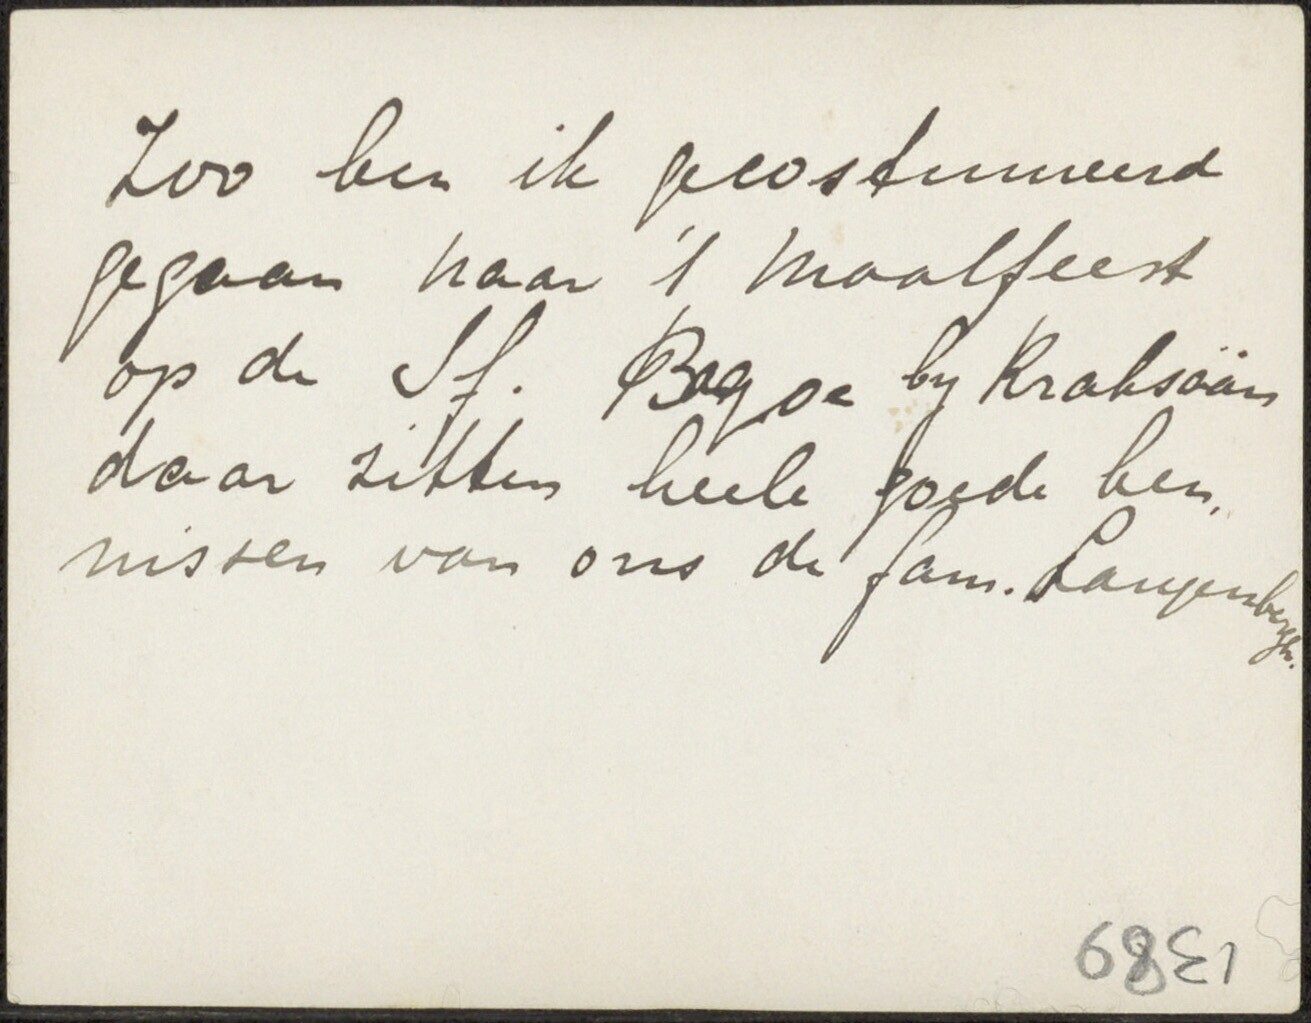 Zoo ben ik gecostumeerd
gegaan naar 't maalfeest
op de Sf. Bagoe by Kraksaän
daar zitten heele goede ken,
nissen van ons de fam. Langenbergh.